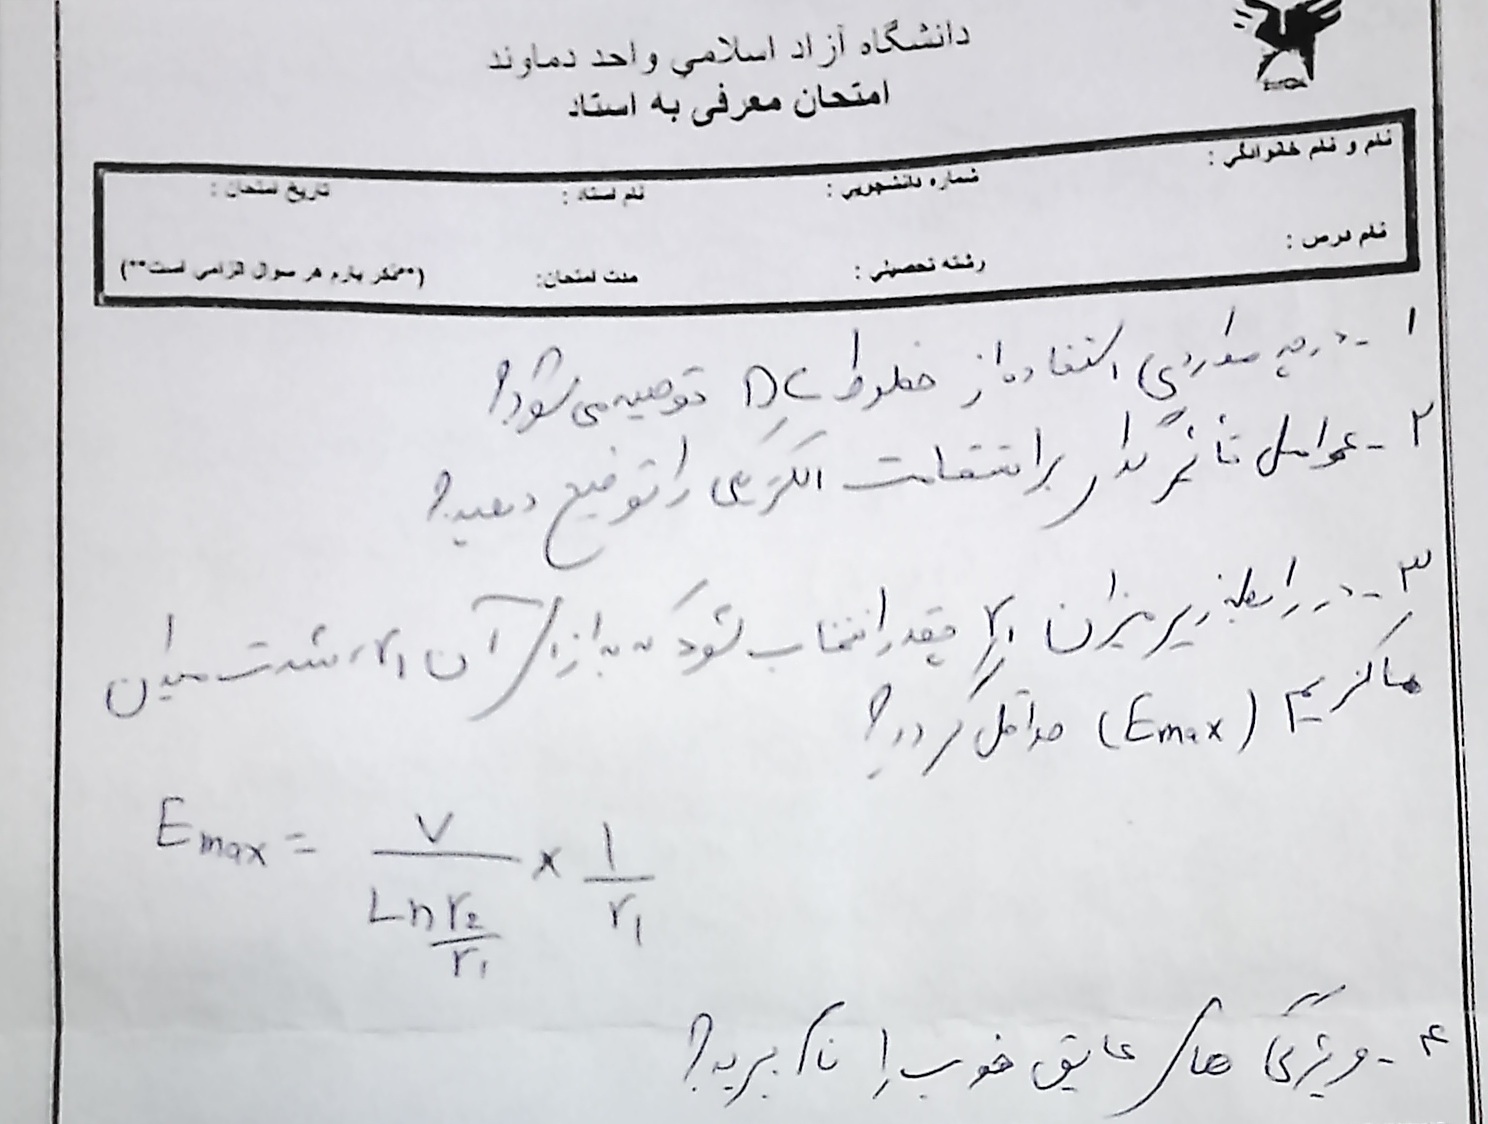 دانشگاه آزاد اسلامي واحد دماوند
امتحان معرفي به استاد
نام و نام خانوادگي :
شماره دانشجويي :
نام استاد :
تاريخ امتحان :
نام درس :
رشته تحصيلي :
مدت امتحان:
(**ذكر بارم هر سوال الزامي است**)
۱ - در چه مواردی استفاده از خطوط DC توصیه می شود؟
۲ - عوامل تاثیر گذار بر استقامت الکتریکی را توضیح دهید؟
۳ - در رابطه زیر میزان r₁ چقدر انتخاب شود که به ازای آن r₁، شدت میدان
ماکزیمم (Emax) حداقل گردد؟
Emax = V / (Ln r₂/r₁) × 1/r₁
۴ - ویژگی های عایق خوب را نام ببرید؟